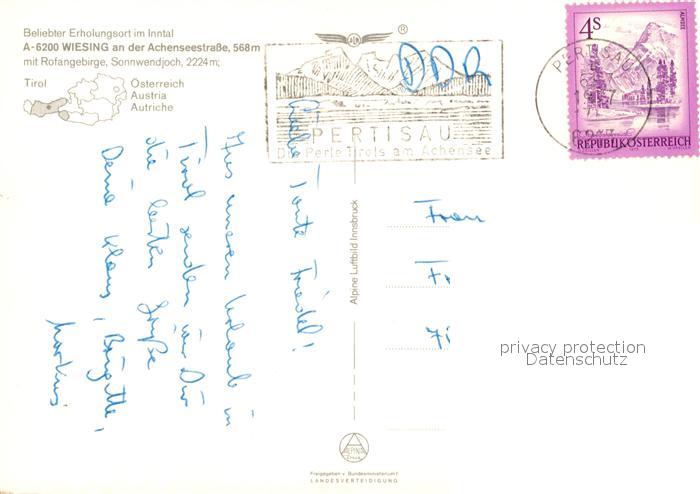 Beliebter Erholungsort im Inntal
A-6200 WIESING an der Achenseestraße, 568m
mit Rofangebirge, Sonnwendjoch, 2224m;
Tirol
Österreich
Austria
Autriche
®
DDR
PERTISAU
Die Perle Tirols am Achensee
PERTISAU
4S
ALMSEE
REPUBLIK ÖSTERREICH
Liebe Tante Friedel!
Aus unserem Urlaub in
Tirol senden wir Dir
die besten Grüße
Deine Klaus, Brigitte,
Markus
Alpine Luftbild Innsbruck
Frau
Fr
privacy protection
Datenschutz
ALPINE
Freigegeben v. Bundesministerium f.
LANDESVERTEIDIGUNG